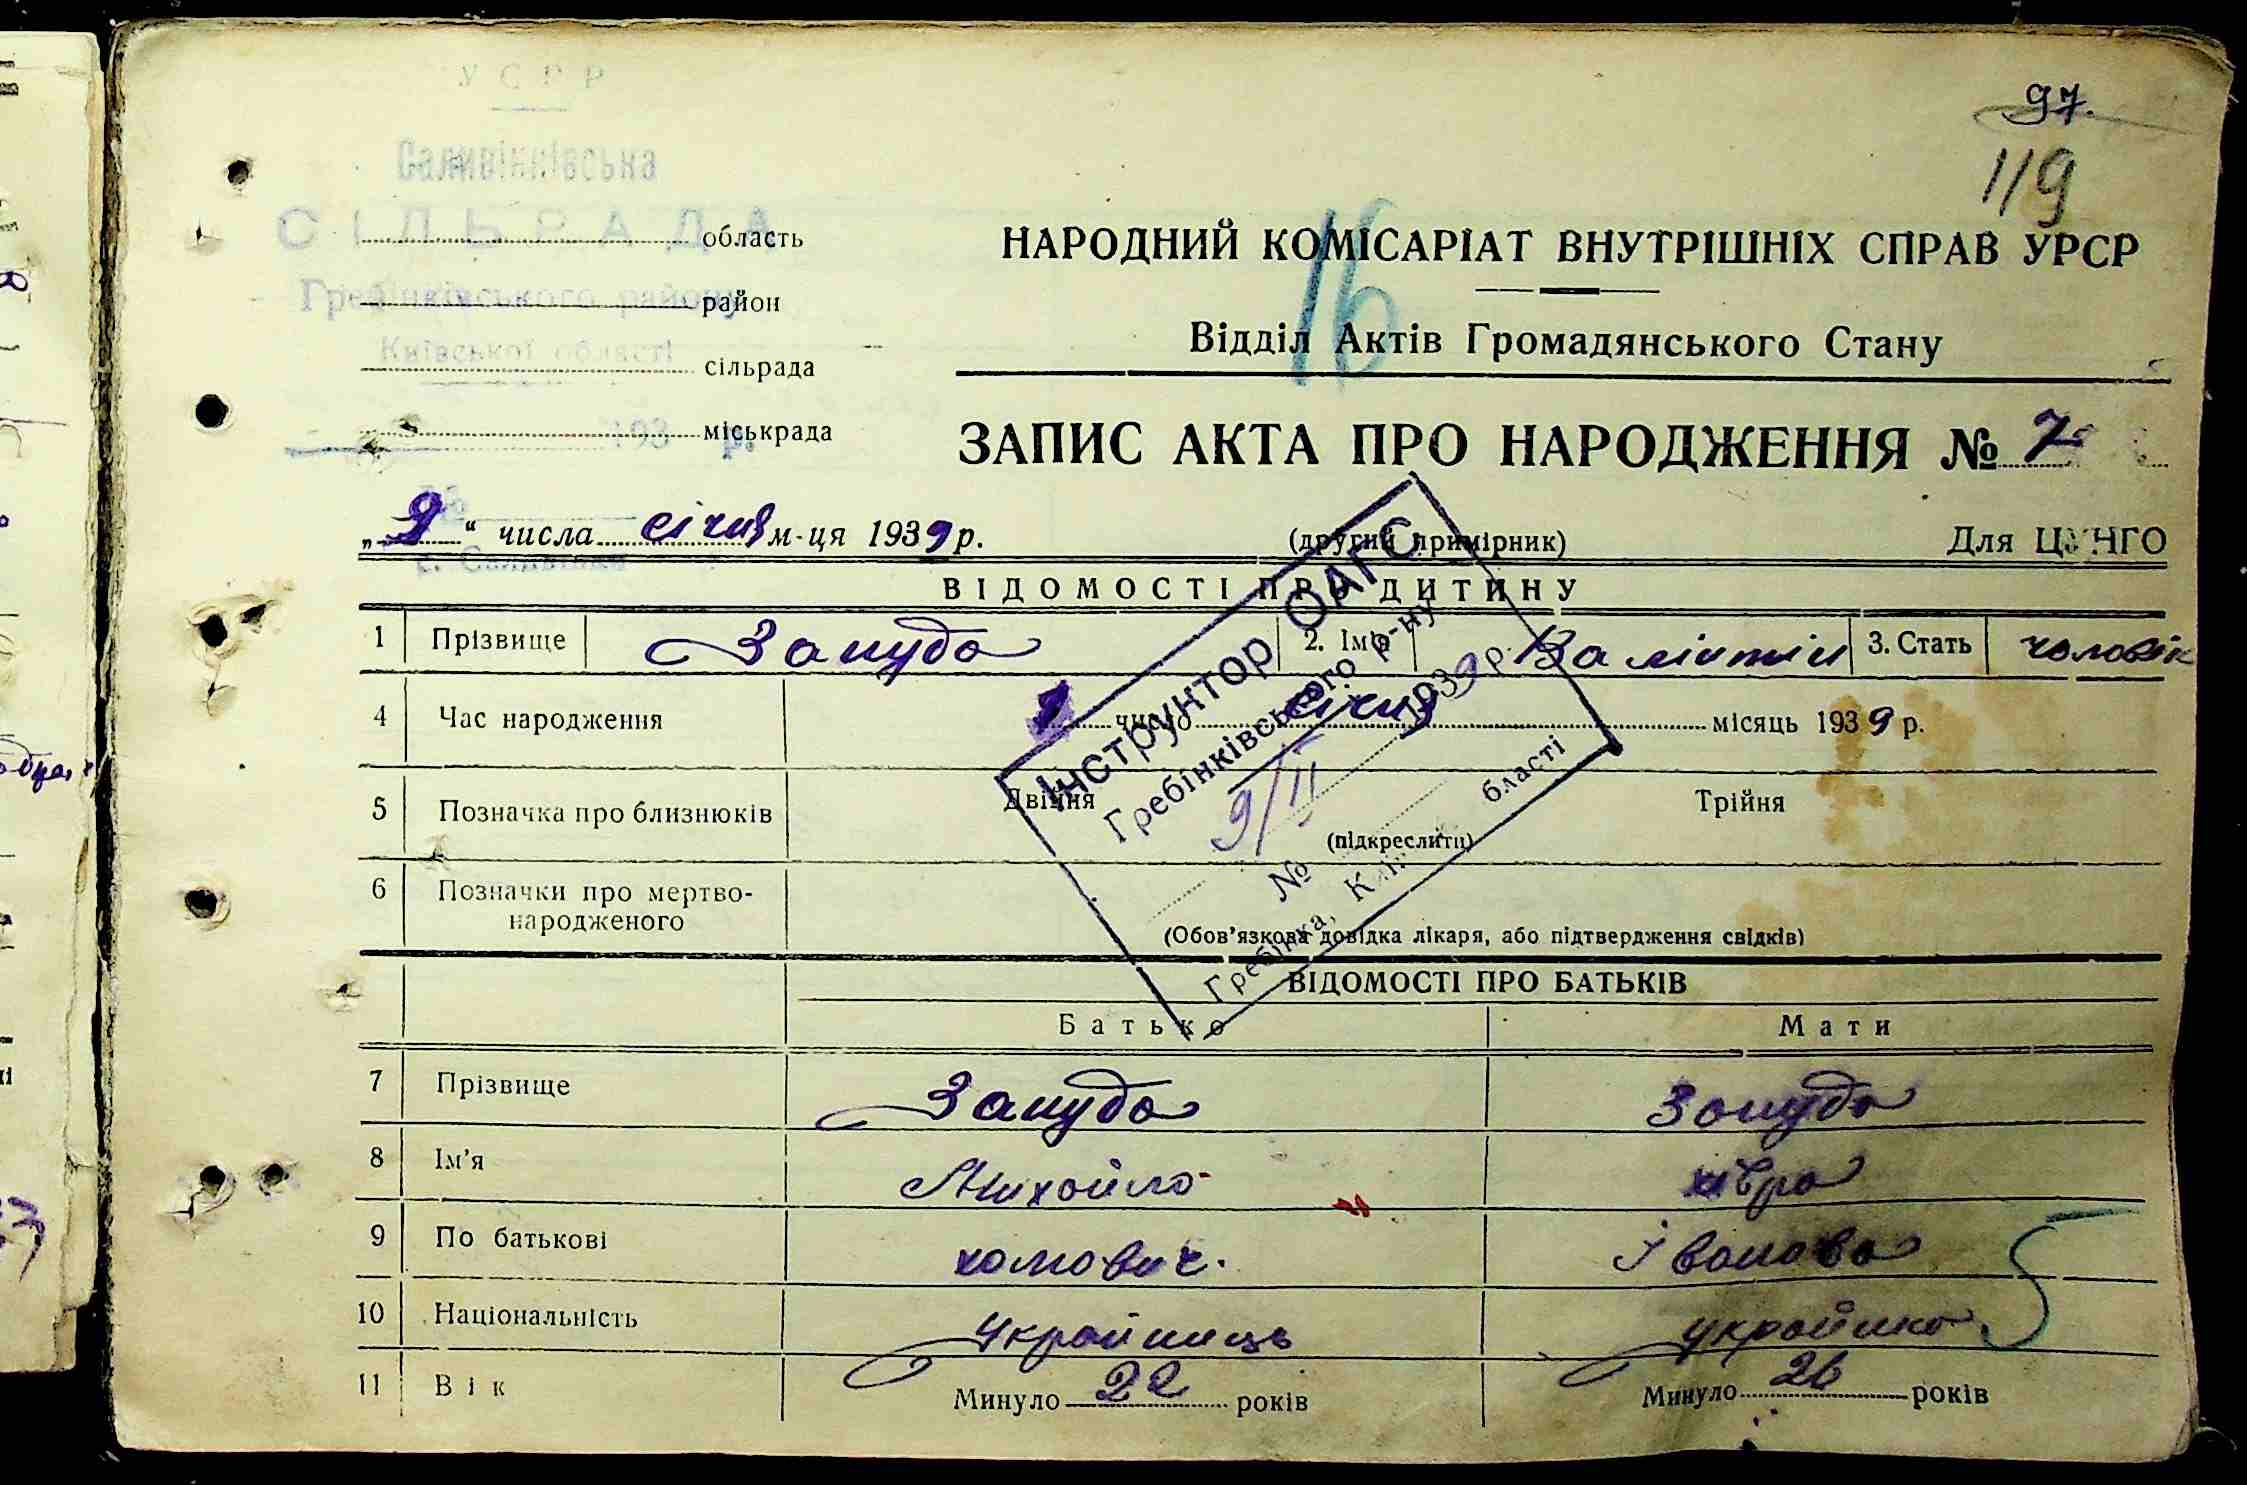 У С Р Р
97.
119
Саливінківська
СІЛЬРАДА
Гребінківського району
Київської області
область
район
сільрада
міськрада
193 р.
с. Саливінки
16
НАРОДНИЙ КОМІСАРІАТ ВНУТРІШНІХ СПРАВ УРСР
Відділ Актів Громадянського Стану
ЗАПИС АКТА ПРО НАРОДЖЕННЯ № 7
„9“ числа січня м-ця 1939 р.
(другий примірник)
Для ЦУНГО
ВІДОМОСТІ ПРО ДИТИНУ
1 Прізвище Зануда 2. Ім'я Валінтін 3. Стать чоловік
4 Час народження число січня місяць 1939 р.
5 Позначка про близнюків Двійня Трійня
(підкреслити)
6 Позначки про мертво-
народженого
(Обов'язкова довідка лікаря, або підтвердження свідків)
Інструктор ОАГС
Гребінківського р-ну
9/II 1939 р.
№
Гребінка, Київ області
ВІДОМОСТІ ПРО БАТЬКІВ
Батько Мати
7 Прізвище Зануда Зануда
8 Ім'я Михайло хівра
9 По батькові хомович. Іванова
10 Національність Україниць українка
11 Вік Минуло 22 років Минуло 26 років
5